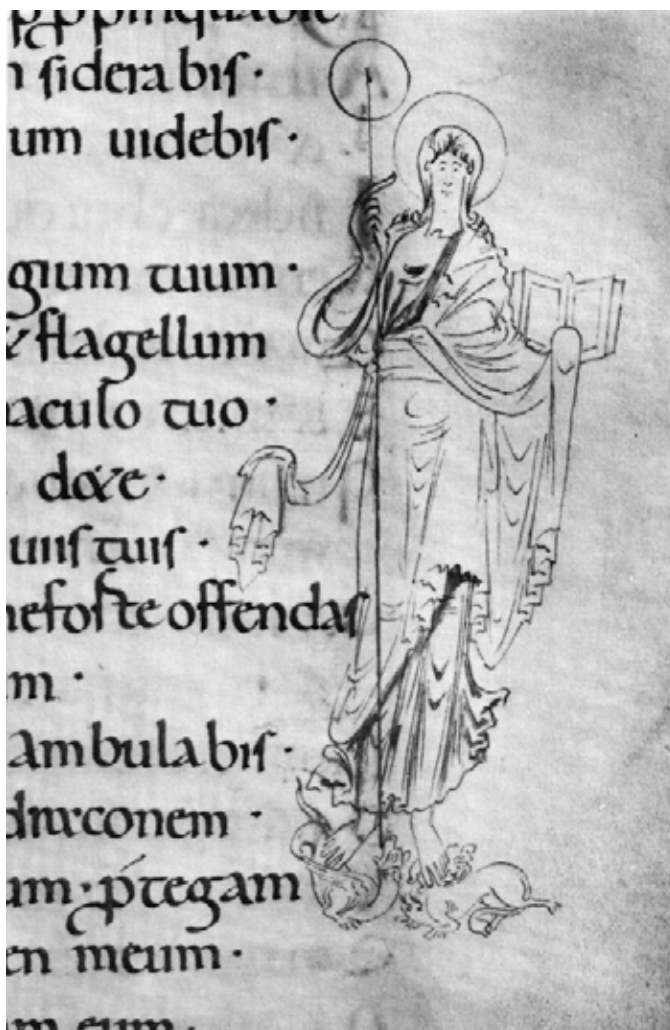 n siderabis·
um uidebis·
gium tuum·
& flagellum
naculo tuo·
d&e·
uiis tuis·
neforte offendas
m·
ambulabis·
draconem·
um· p̄tegam
en meum·
m eum·